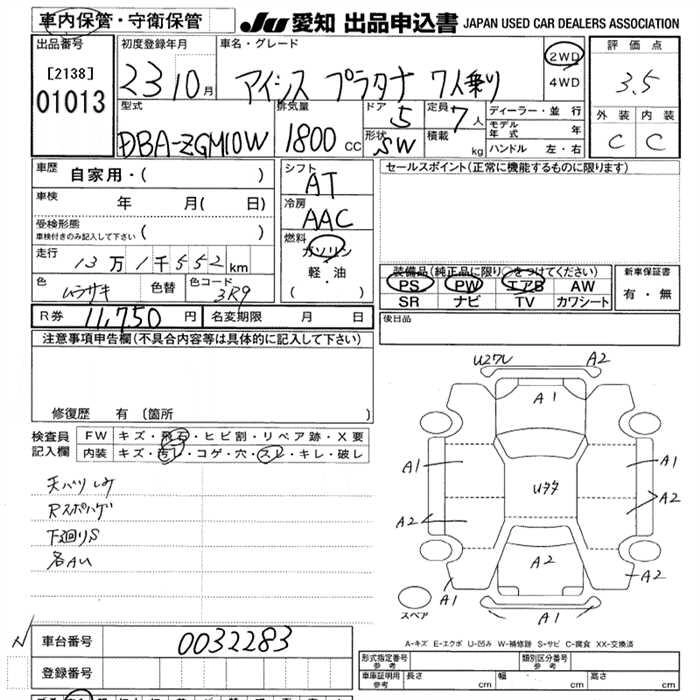 車内保管・守衛保管 JU 愛知 出品申込書 JAPAN USED CAR DEALERS ASSOCIATION
出品番号 初度登録年月 車名・グレード 評価点
[2138] 23 10月 アイシス プラタナ 7人乗り 2WD 4WD 3.5
01013
型式 排気量 ドア 定員 ディーラー・並行 外装 内装
DBA-ZGM10W 1800cc 5 7人 モデル年式 年 C C
形状 SW 積載 kg ハンドル 左・右
車歴 自家用・( ) シフト AT セールスポイント(正常に機能するものに限ります)
車検 年 月( 日) 冷房 AAC
受検形態 車検付きのみ記入して下さい ( ) 燃料 ガソリン
走行 13万1千552km 軽・油
色 ムラサキ 色替 色コード 3R9 ( )
装備品(純正品に限り○をつけてください) 新車保証書
PS PW エアB AW 有・無
SR ナビ TV カワシート
R券 11,750円 名変期限 月 日 後日品
注意事項申告欄(不具合内容等は具体的に記入して下さい)
修復歴 有(箇所 )
検査員記入欄 FW キズ・飛石・ヒビ割・リペア跡・X要
内装 キズ・汚レ・コゲ・穴・スレ・キレ・破レ
天バリしみ
Rスポハゲ
下廻りS
各AU
U27レ A2
A1
A1 A1
Uクク
A2 A2
A2
A1 A2
スペア A1 A1
A-キズ E-エクボ U-凹み W-補修跡 S-サビ C-腐食 XX-交換済
車台番号 0032283
登録番号
形式指定番号 参考 類別区分番号 参考
車庫証明用 参考 長さ cm 幅 cm 高さ cm